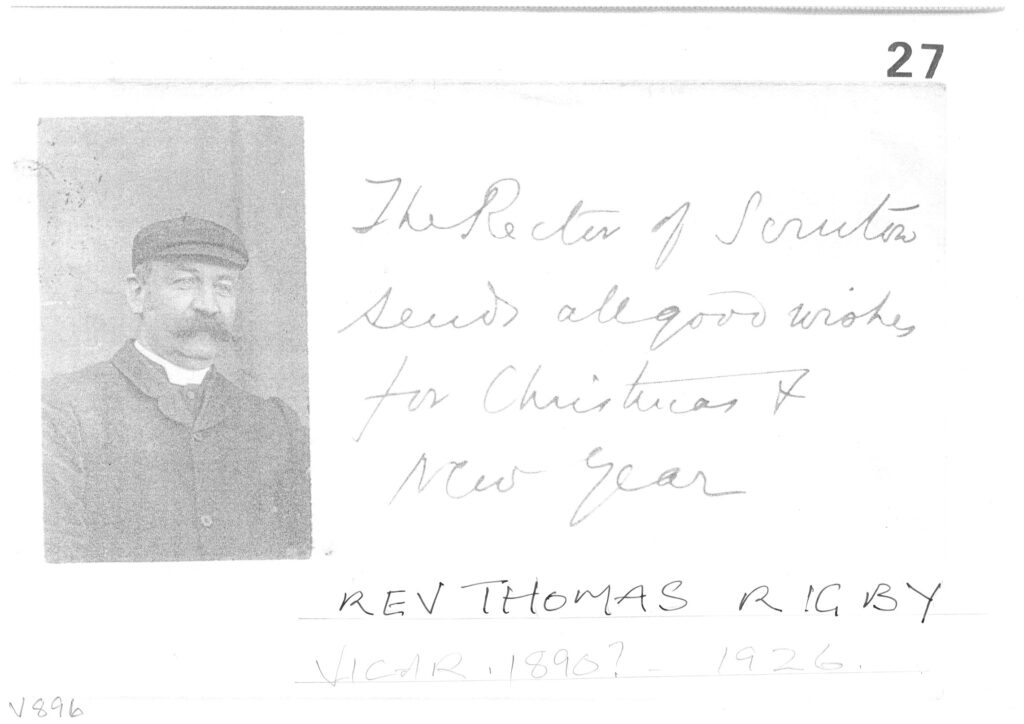 27
The Rector of Scruton
sends all good wishes
for Christmas &
New Year
REV THOMAS RIGBY
VICAR . 1890? - 1926.
V896